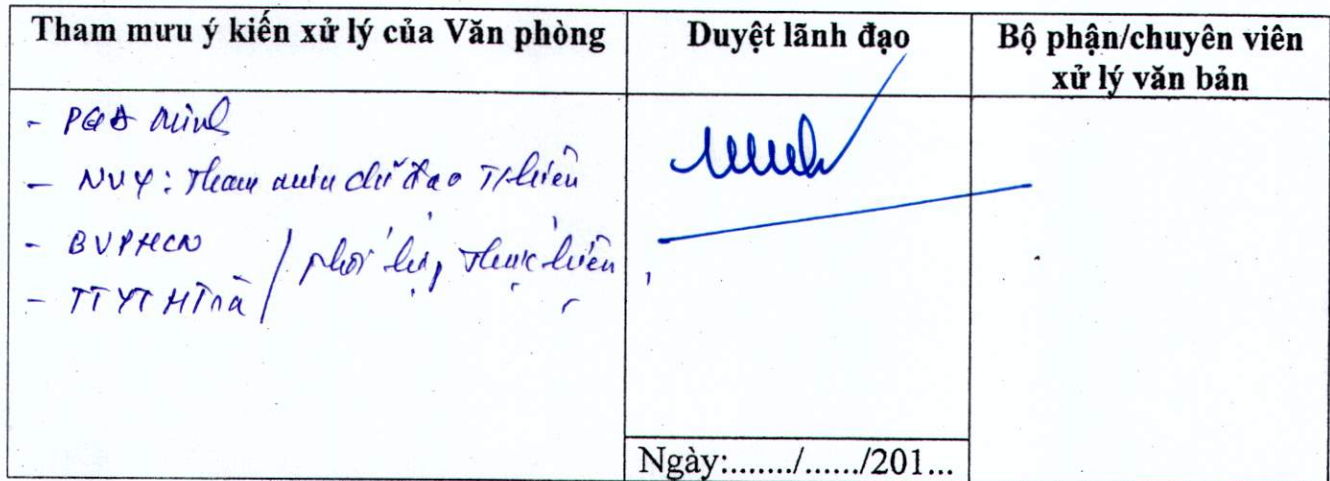 Tham mưu ý kiến xử lý của Văn phòng
Duyệt lãnh đạo
Bộ phận/chuyên viên
xử lý văn bản
- PGĐ Minh
- NVY: Tham mưu chỉ đạo T/hiện
- BVPHCN
- TTYT HTrà
/ phối hợp thực hiện
Ngày:......./....../201...